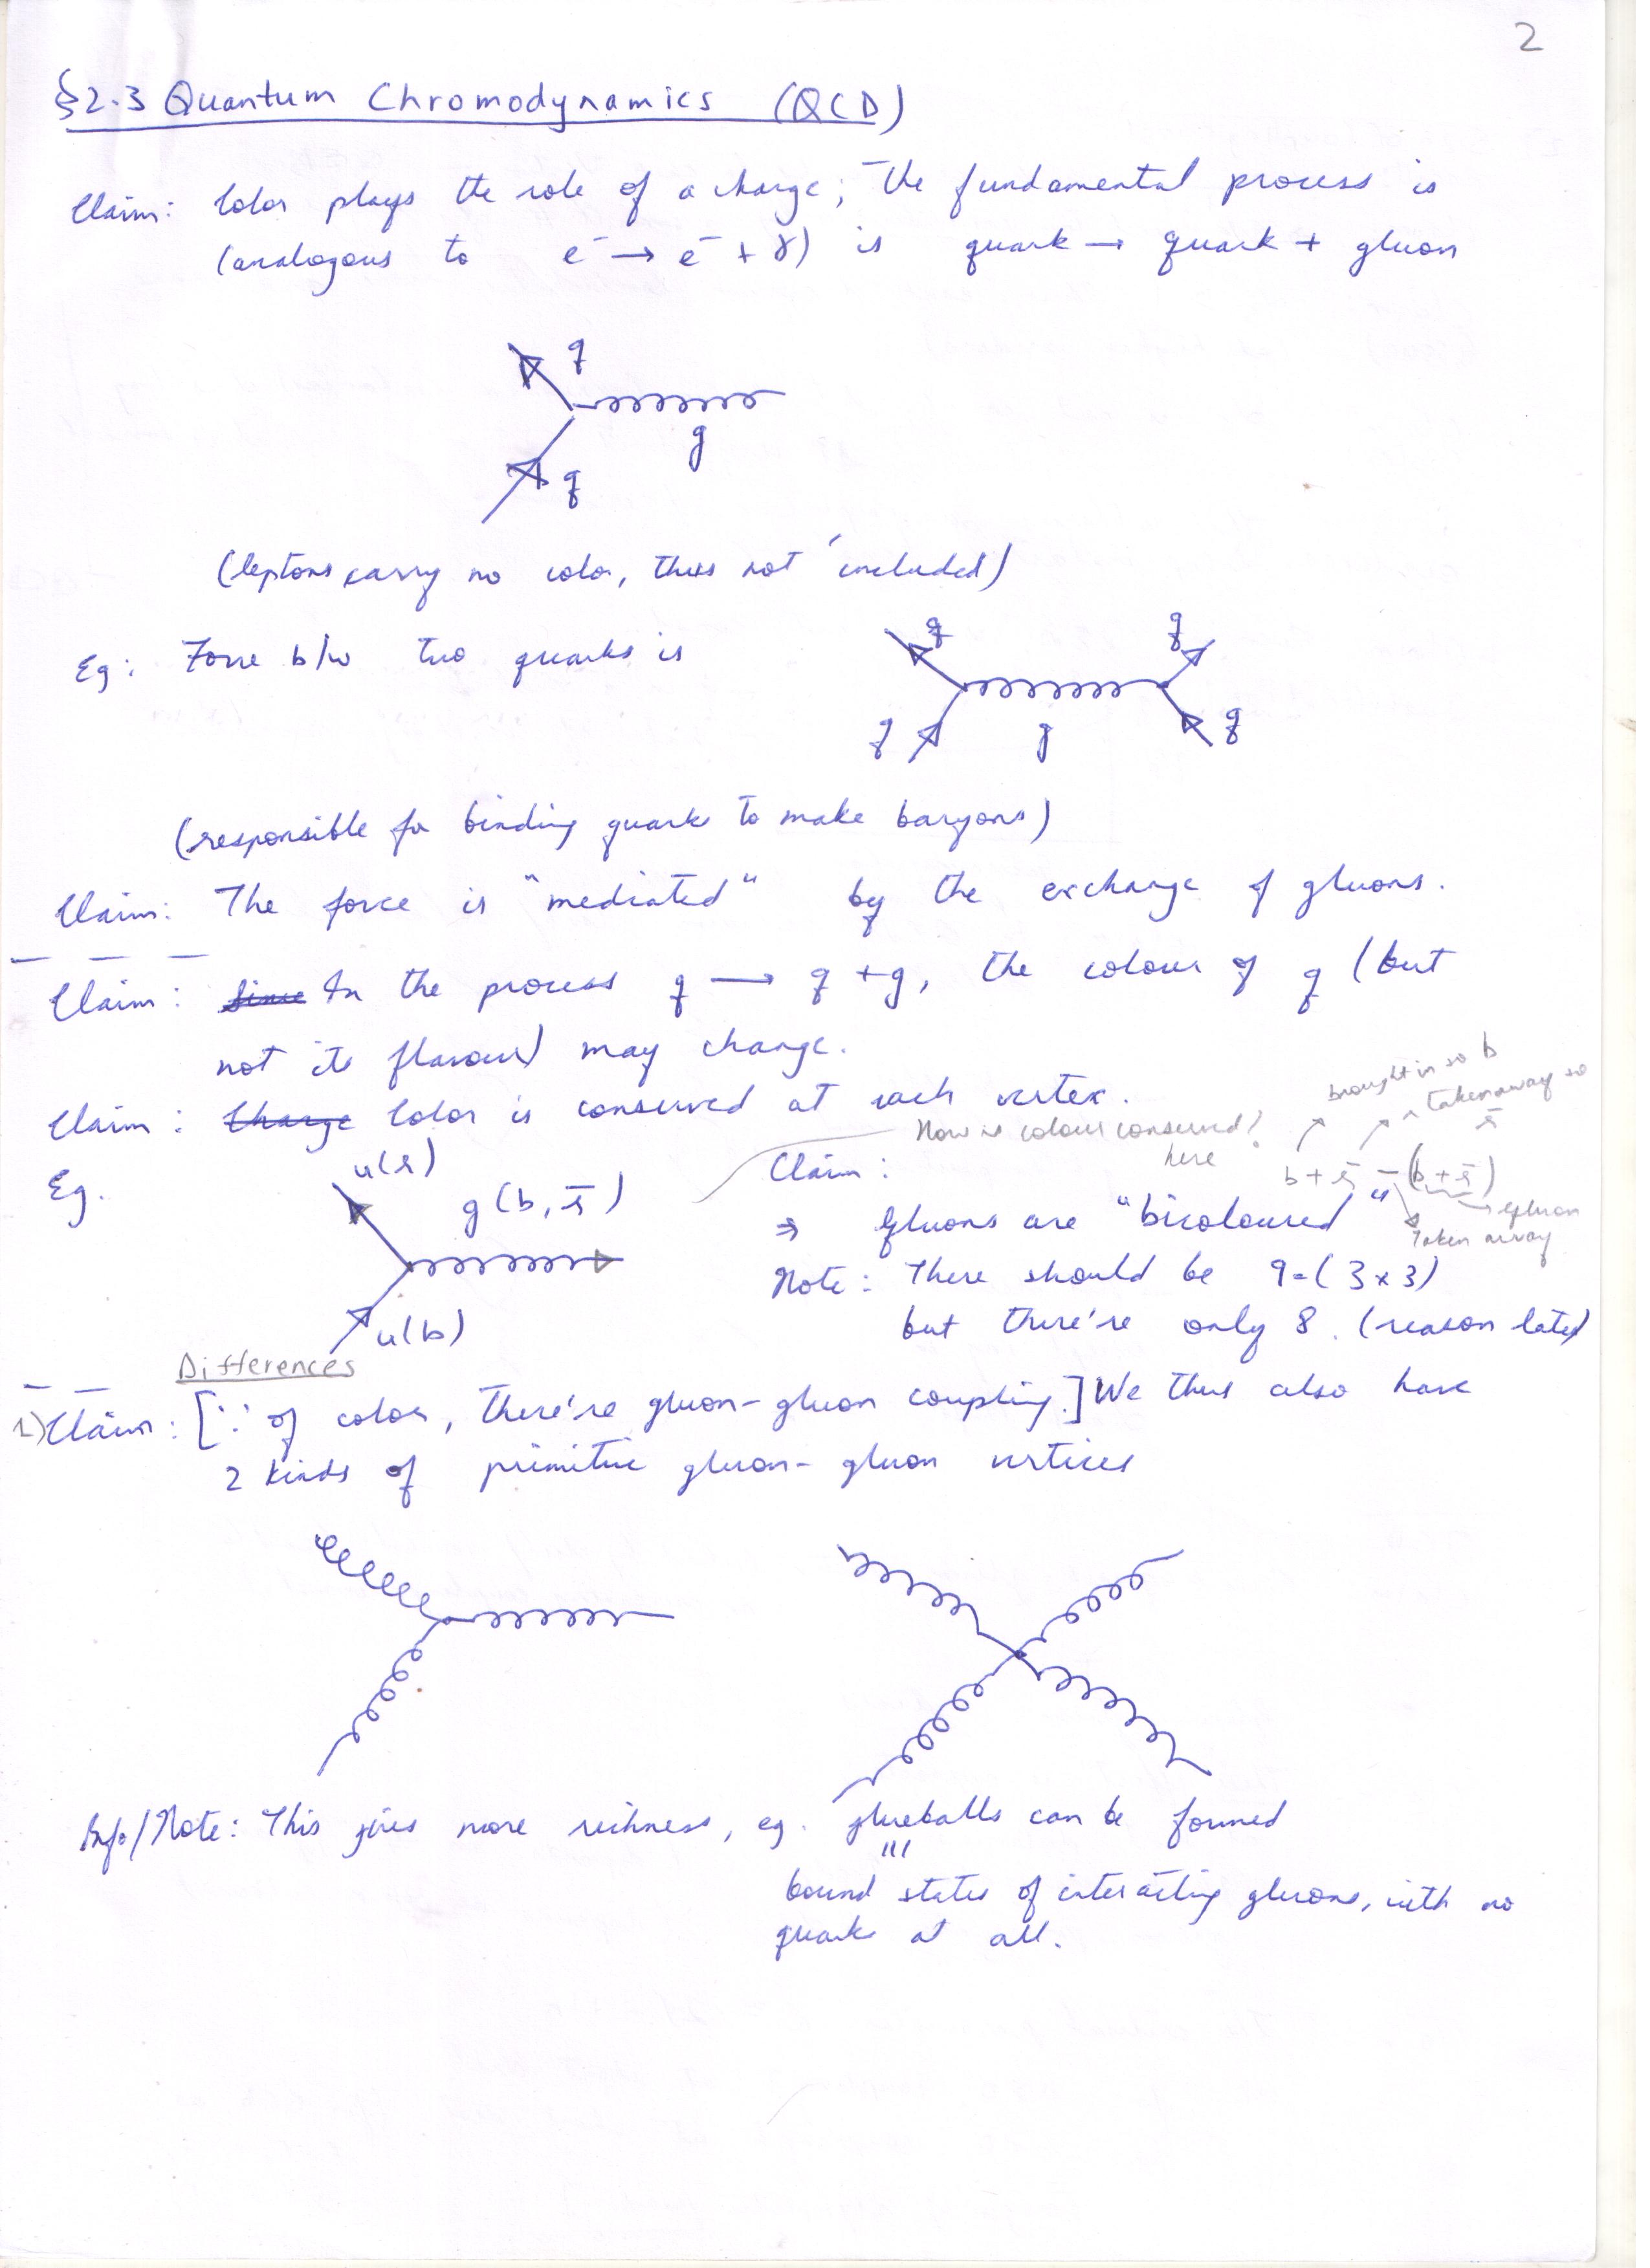 2
§2.3 Quantum Chromodynamics (QCD)
Claim: Color plays the role of a charge; The fundamental process is
(analogous to e⁻ → e⁻ + γ) is quark → quark + gluon
q
g
q
(leptons carry no color, thus not included)
Eg: Force b/w two quarks is
q q
q g q
(responsible for binding quarks to make baryons)
Claim: The force is "mediated" by the exchange of gluons.
Claim: ~~Since~~ In the process q → q + g, the colour of q (but
not its flavour) may change.
Claim: ~~Charge~~ Color is conserved at each vertex.
How is colour conserved?
here
brought in so b
taken away so
r̄
b + r̄ - (b + r̄)
gluon
Taken away
Eg.
u(r)
g(b, r̄)
u(b)
Claim:
⇒ Gluons are "bicoloured"
Note: There should be 9=(3x3)
but there're only 8. (reason later)
Differences
1) Claim: [∵ of color, there're gluon-gluon coupling.] We thus also have
2 kinds of primitive gluon-gluon vertices
Info/Note: This gives more richness, eg. glueballs can be formed
|||
bound states of interacting gluons, with no
quarks at all.